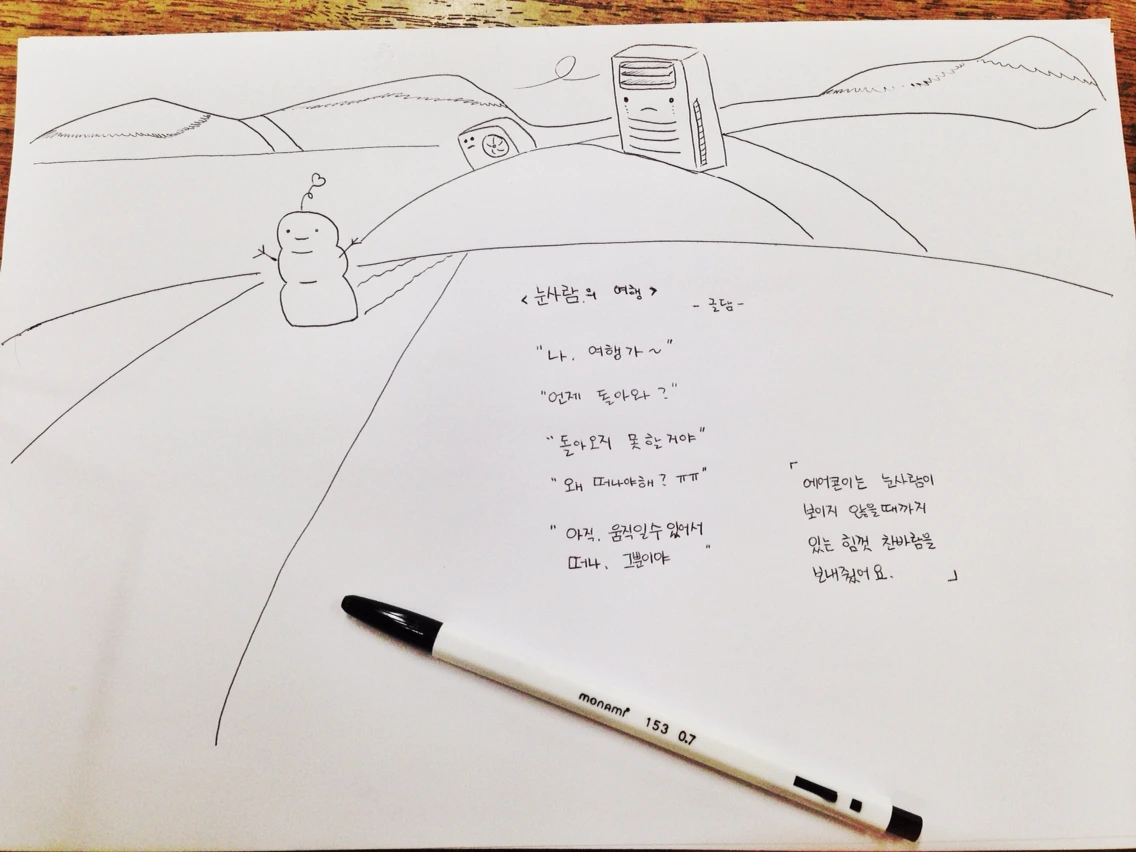 <눈사람의 여행>
- 글담 -
"나, 여행가~"
"언제 돌아와?"
"돌아오지 못할거야"
"왜 떠나야해? ㅠㅠ"
"아직, 움직일수 있어서
떠나, 그뿐이야"
「에어콘이는 눈사람이
보이지 않을때까지
있는 힘껏 찬바람을
보내줬어요.」
monami 153 0.7